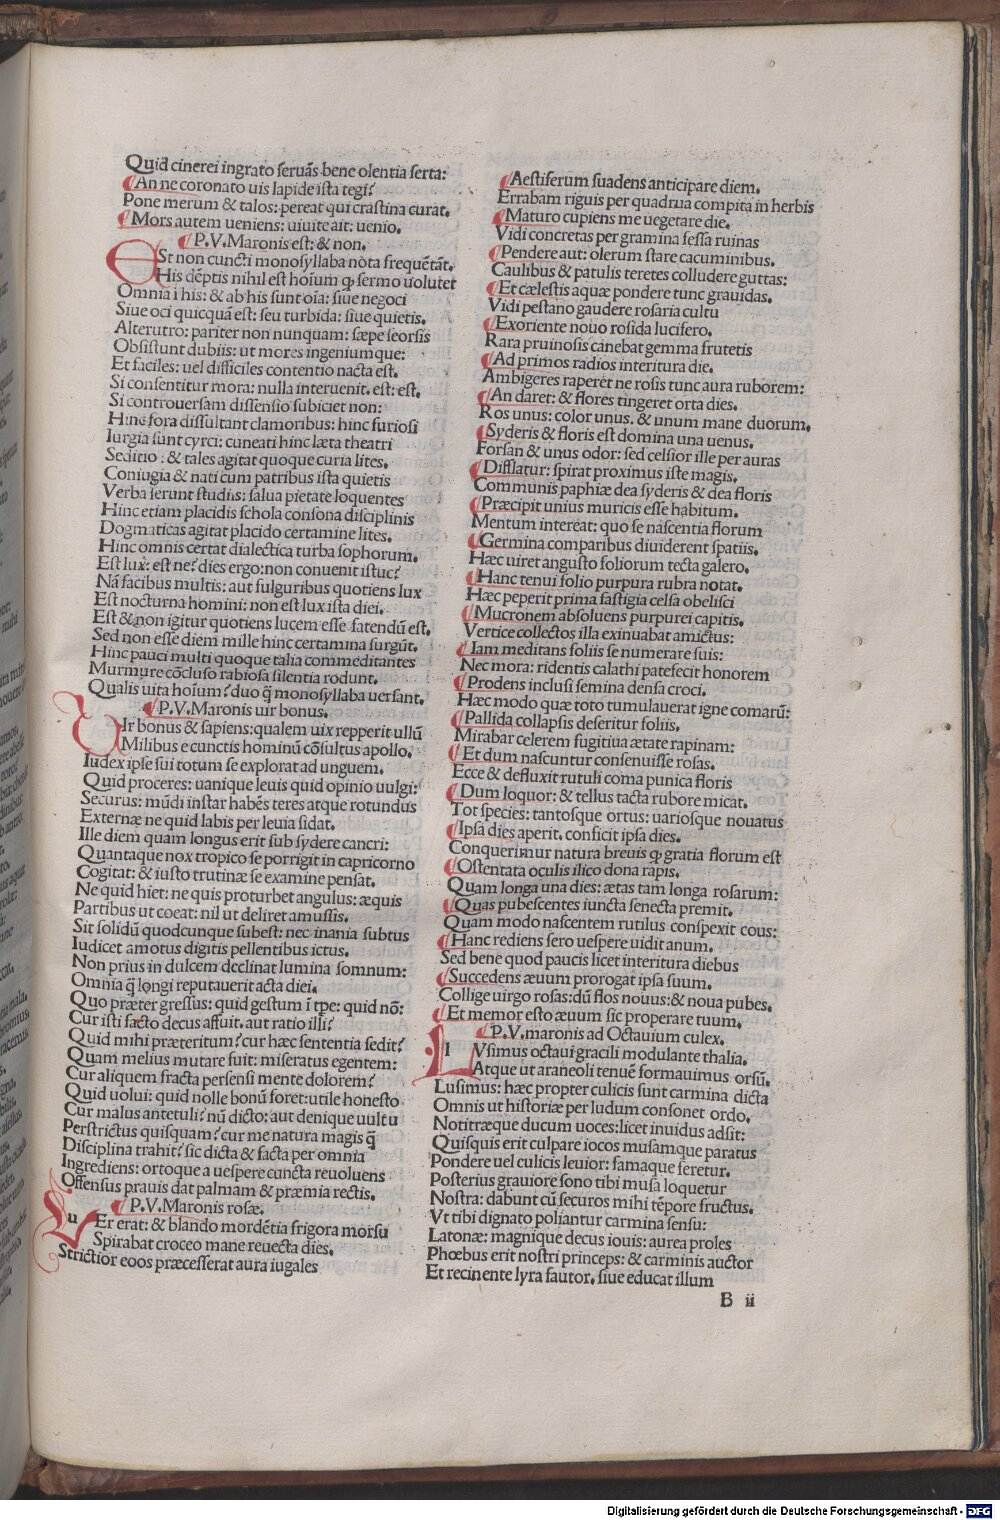 Quid cinerei ingrato seruãs bene olentia serta:
An ne coronato uis lapide ista tegi?
Pone merum & talos: pereat qui crastina curat.
Mors autem ueniens: uiuite ait: uenio.
P.V.Maronis est: & non.
ESt non cuncti monosyllaba nota frequẽtãt.
His dẽptis nihil est hoĩum q̃ sermo uolutet
Omnia i his: & ab his sunt oĩa: siue negoci
Siue oci quicquã est: seu turbida: siue quietis.
Alterutro: pariter non nunquam: sæpe seorsis
Obsistunt dubiis: ut mores ingeniumque:
Et faciles: uel difficiles contentio nacta est.
Si consentitur mora: nulla interuenit. est: est.
Si controuersam dissensio subiciet non:
Hinc fora dissultant clamoribus: hinc furiosi
Iurgia sunt cyrci: cuneati hinc læta theatri
Seditio: & tales agitat quoque curia lites.
Coniugia & nati cum patribus ista quietis
Verba serunt studiis: salua pietate loquentes
Hinc etiam placidis schola consona disciplinis
Dogmaticas agitat placido certamine lites.
Hinc omnis certat dialectica turba sophorum.
Est lux: est ne? dies ergo: non conuenit istuc?
Nã facibus multis: aut fulguribus quotiens lux
Est nocturna homini: non est lux ista diei.
Est & non igitur quotiens lucem esse fatendũ est.
Sed non esse diem mille hinc certamina surgũt.
Hinc pauci multi quoque talia commeditantes
Murmure cõcluso rabiosa silentia rodunt.
Qualis uita hoĩum? duo q̃ monosyllaba uersant.
P.V.Maronis uir bonus.
VIr bonus & sapiens: qualem uix repperit ullũ
Milibus e cunctis hominũ cõsultus apollo.
Iudex ipse sui totum se explorat ad unguem.
Quid proceres: uanique leuis quid opinio uulgi:
Securus: mũdi instar habẽs teres atque rotundus
Externæ ne quid labis per leuia sidat.
Ille diem quam longus erit sub sydere cancri:
Quantaque nox tropico se porrigit in capricorno
Cogitat: & iusto trutinæ se examine pensat.
Ne quid hiet: ne quis proturbet angulus: æquis
Partibus ut coeat: nil ut deliret amussis.
Sit solidũ quodcunque subest: nec inania subtus
Iudicet amotus digitis pellentibus ictus.
Non prius in dulcem declinat lumina somnum:
Omnia q̃ longi reputauerit acta diei.
Quo præter gressus: quid gestum ĩ tpe: quid nõ:
Cur isti facto decus affuit. aut ratio illi?
Quid mihi præteritum? cur hæc sententia sedit?
Quam melius mutare fuit: miseratus egentem:
Cur aliquem fracta persensi mente dolorem?
Quid uolui: quid nolle bonũ foret: utile honesto
Cur malus antetuli? nũ dicto: aut denique uultu
Perstrictus quisquam? cur me natura magis q̃
Disciplina trahit? sic dicta & facta per omnia
Ingrediens: ortoque a uespere cuncta reuoluens
Offensus prauis dat palmam & præmia rectis.
P.V.Maronis rosæ.
VEr erat: & blando mordẽtia frigora morsu
Spirabat croceo mane reuecta dies.
Strictior eoos præcesserat aura iugales
Aestiferum suadens anticipare diem.
Errabam riguis per quadrua compita in herbis
Maturo cupiens me uegetare die.
Vidi concretas per gramina sessa ruinas
Pendere aut: olerum stare cacuminibus.
Caulibus & patulis teretes colludere guttas:
Et cælestis aquæ pondere tunc grauidas.
Vidi pestano gaudere rosaria cultu
Exoriente nouo rosida lucifero.
Rara pruinosis canebat gemma frutetis
Ad primos radios interitura die.
Ambigeres raperet ne rosis tunc aura ruborem:
An daret: & flores tingeret orta dies.
Ros unus: color unus. & unum mane duorum.
Syderis & floris est domina una uenus.
Forsan & unus odor: sed celsior ille per auras
Difflatur: spirat proximus iste magis.
Communis paphiæ dea syderis & dea floris
Præcipit unius muricis esse habitum.
Mentum intereat: quo se nascentia florum
Germina comparibus diuiderent spatiis.
Hæc uiret angusto foliorum tecta galero.
Hanc tenui folio purpura rubra notat.
Hæc peperit prima fastigia celsa obelisci
Mucronem absoluens purpurei capitis.
Vertice collectos illa exinuabat amictus:
Iam meditans foliis se numerare suis:
Nec mora: ridentis calathi patefecit honorem
Prodens inclusi semina densa croci.
Hæc modo quæ toto tumulauerat igne comarũ:
Pallida collapsis deseritur foliis.
Mirabar celerem fugitiua ætate rapinam:
Et dum nascuntur consenuisse rosas.
Ecce & defluxit rutuli coma punica floris
Dum loquor: & tellus tacta rubore micat.
Tot species: tantosque ortus: uariosque nouatus
Ipsa dies aperit. conficit ipsa dies.
Conquerimur natura breuis q̃ gratia florum est
Ostentata oculis ilico dona rapis.
Quam longa una dies: ætas tam longa rosarum:
Quas pubescentes iuncta senecta premit.
Quam modo nascentem rutilus conspexit eous:
Hanc rediens sero uespere uidit anum.
Sed bene quod paucis licet interitura diebus
Succedens æuum prorogat ipsa suum.
Collige uirgo rosas: dũ flos nouus: & noua pubes.
Et memor esto æuum sic properare tuum.
P.V.maronis ad Octauium culex.
LVsimus octaui gracili modulante thalia.
Atque ut araneoli tenuẽ formauimus orsũ.
Lusimus: hæc propter culicis sunt carmina dicta
Omnis ut historiæ per ludum consonet ordo.
Notitræque ducum uoces: licet inuidus adsit:
Quisquis erit culpare iocos musamque paratus
Pondere uel culicis leuior: famaque feretur.
Posterius grauiore sono tibi musa loquetur
Nostra: dabunt cũ securos mihi tẽpore fructus.
Vt tibi dignato poliantur carmina sensu:
Latonæ: magnique decus iouis: aurea proles
Phœbus erit nostri princeps: & carminis auctor
Et recinente lyra fautor. siue educat illum
B ii
Digitalisierung gefördert durch die Deutsche Forschungsgemeinschaft - DFG